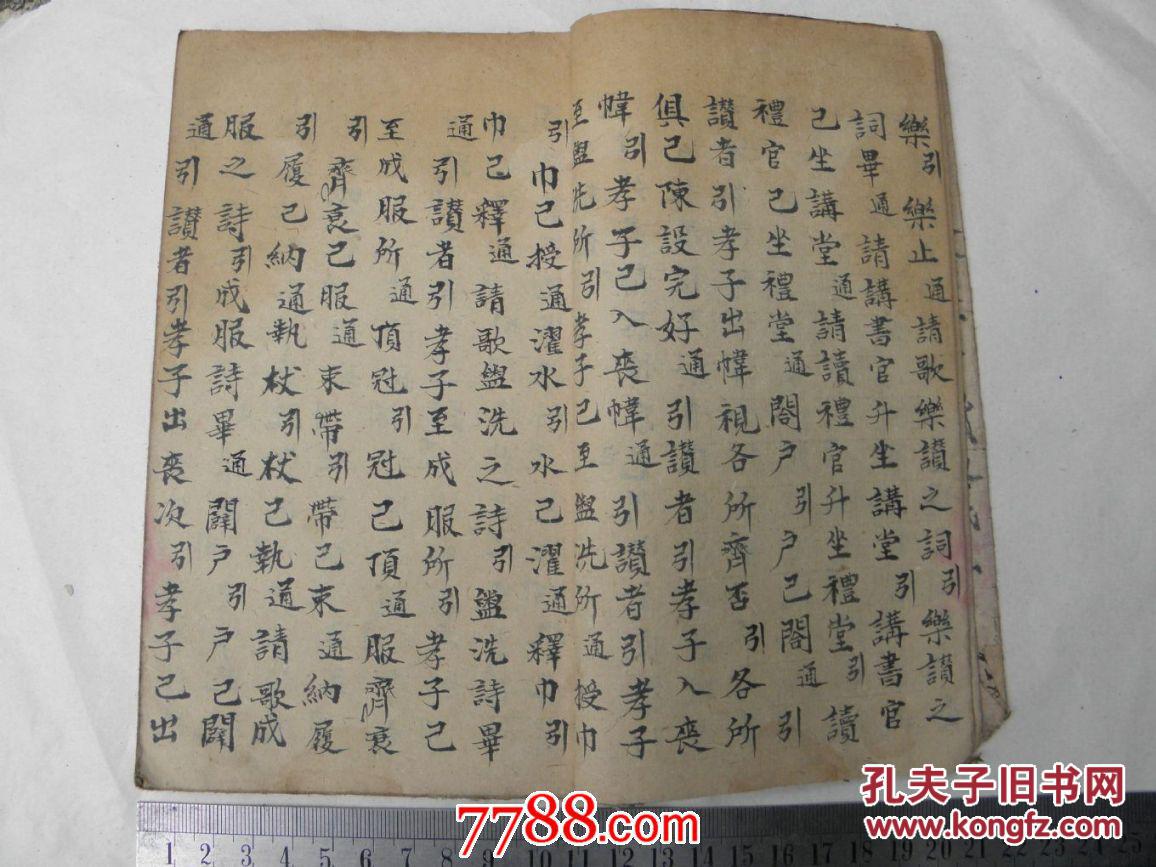 樂引樂止通請歌樂讃之詞引樂讃之
詞畢通請講書官升坐講堂引講書官
己坐講堂通請讀禮官升坐禮堂引讀
禮官己坐禮堂通閤户引户己閤通引
讃者引孝子出幃視各所齊否引各所
俱己陳設完好通引讃者引孝子入喪
幃引孝子己入喪幃通引讃者引孝子
至盥洗所引孝子己至盥洗所通授巾
引巾己授通濯水引水己濯通釋巾引
巾己釋通請歌盥洗之詩引盥洗詩畢
通引讃者引孝子至成服所引孝子己
至成服所通頂冠引冠己頂通服齊衰
引齊衰己服通束帶引帶己束通納履
引履己納通執杖引杖己執通請歌成
服之詩引成服詩畢通闢户引户己闢
通引讃者引孝子出喪次引孝子己出
7788.com
孔夫子旧书网
www.kongfz.com
1 2 3 4 5 6 7 8 9 10 11 12 13 14 15 16 17 18 19 20 21 22 23 24 25